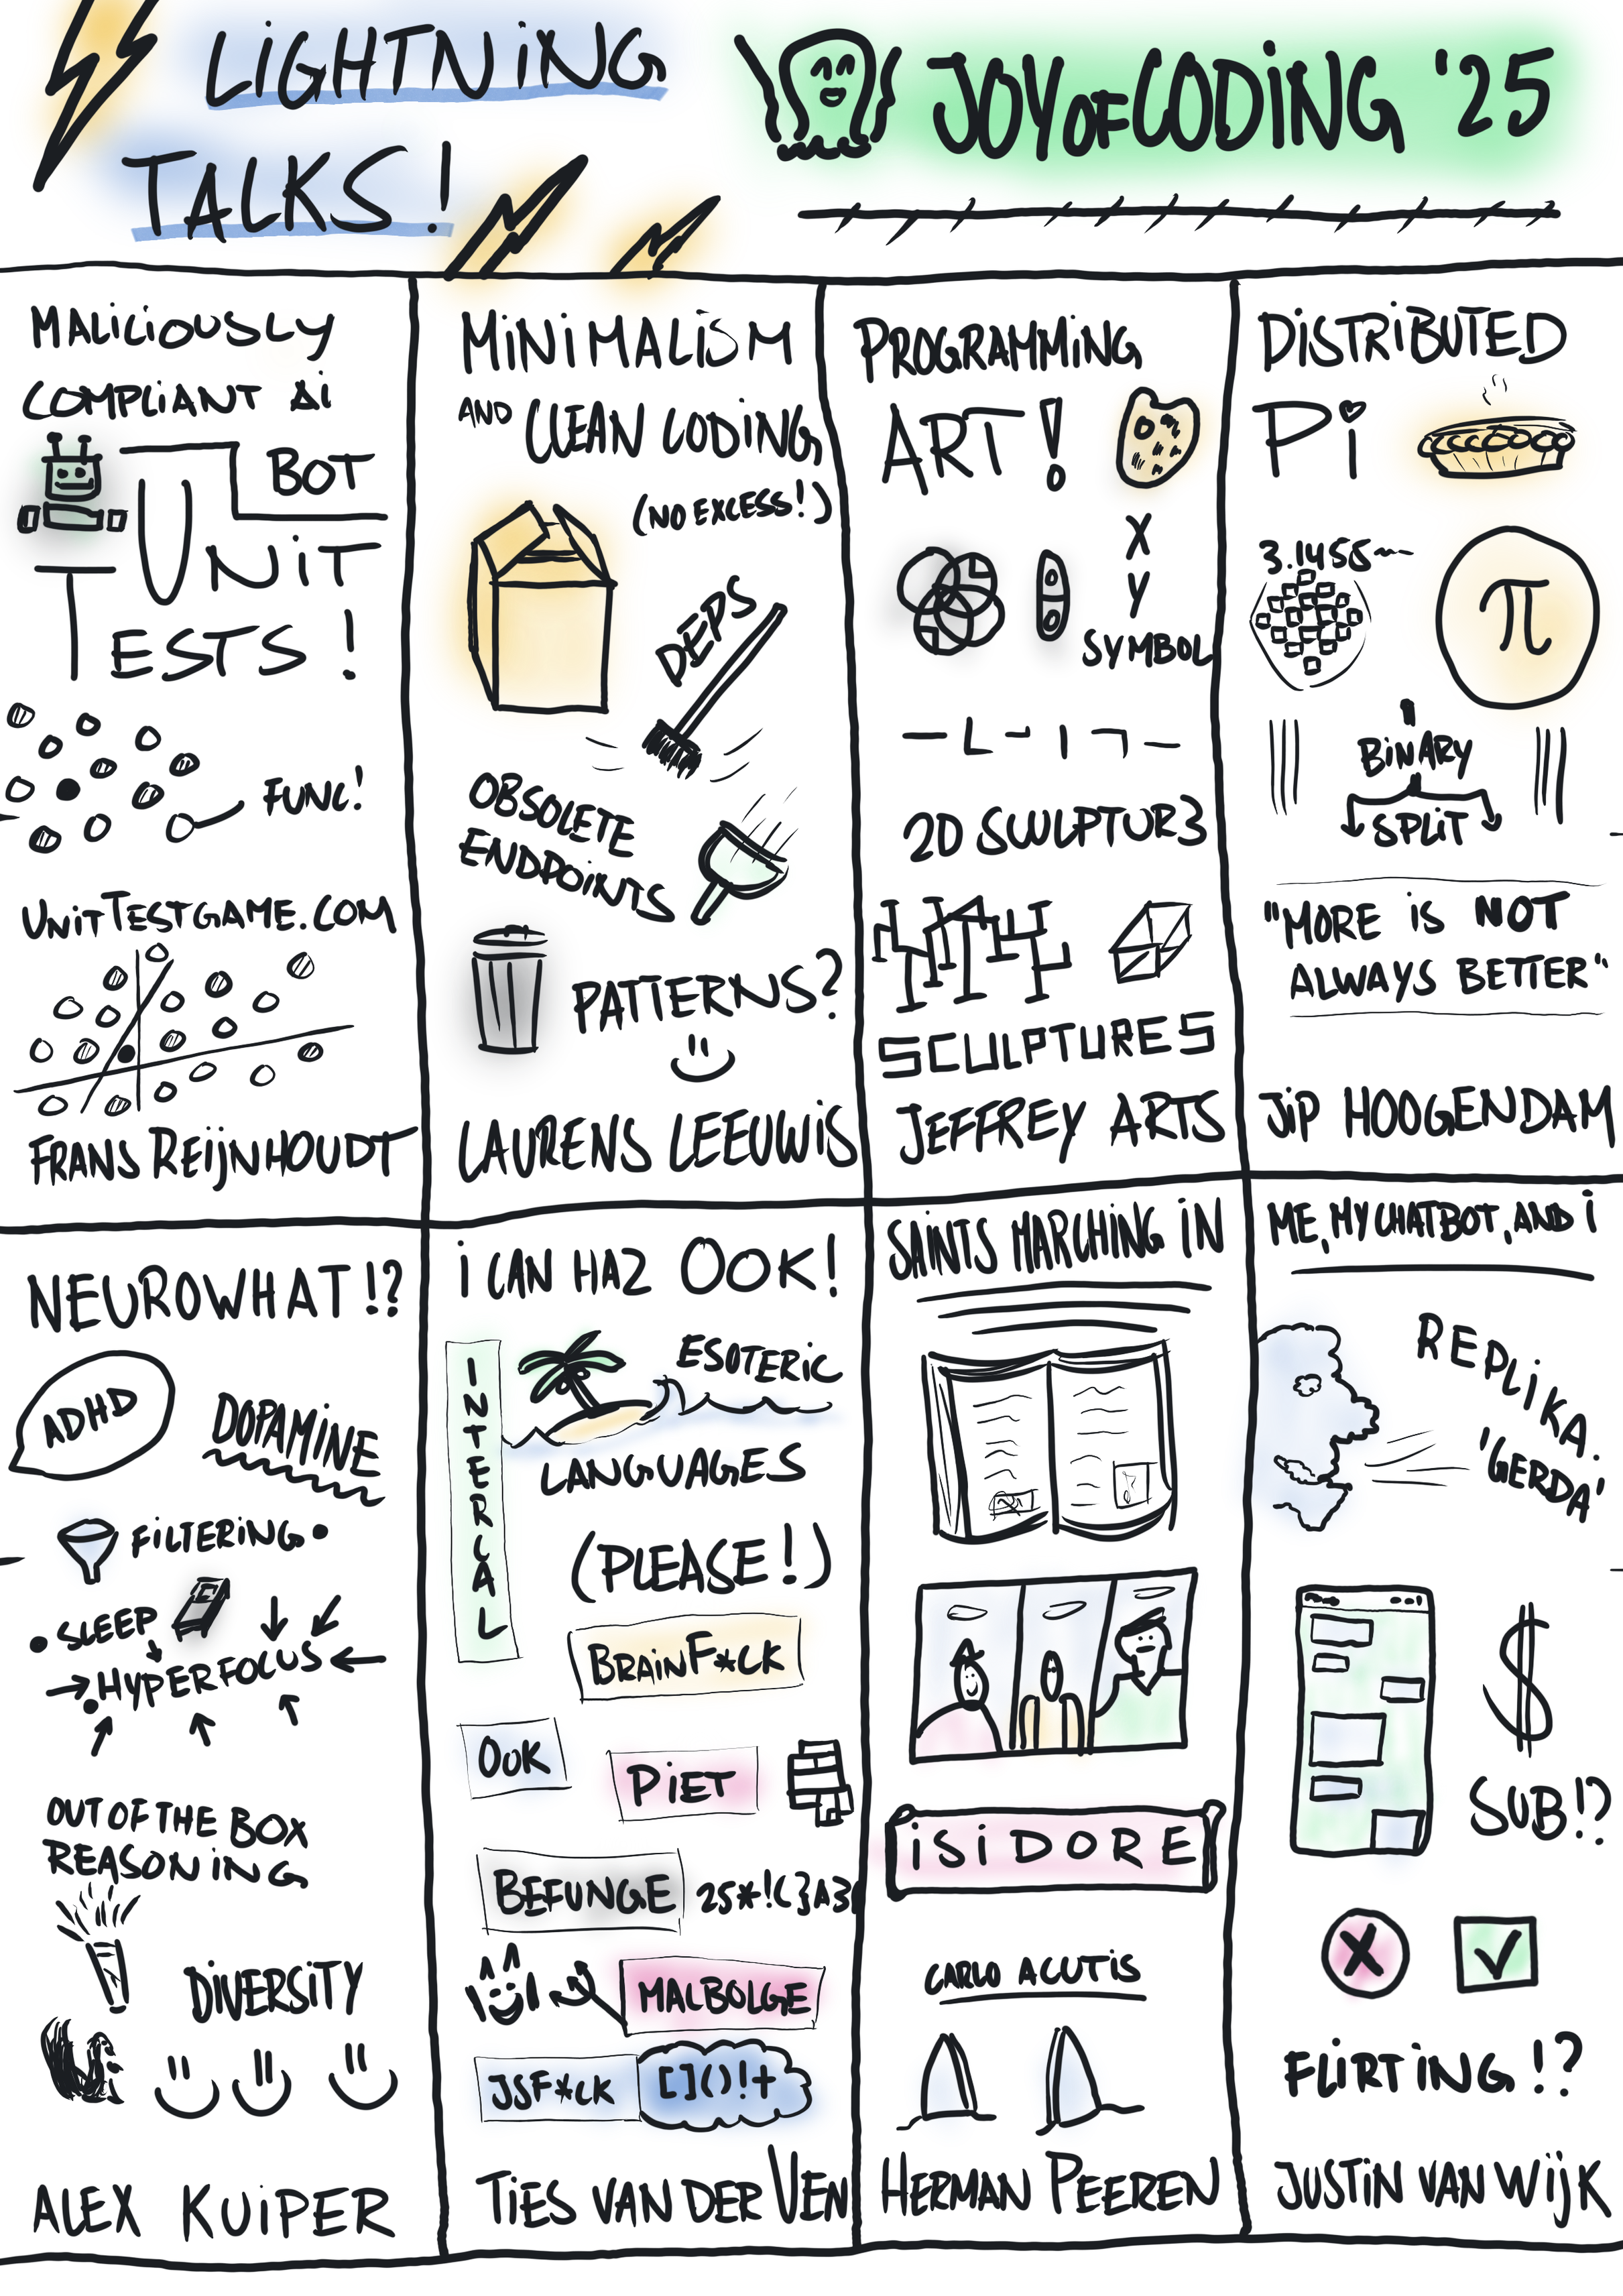 LIGHTNING
TALKS!
JOY OF CODING '25
MALICIOUSLY
COMPLIANT AI
BOT
UNIT
TESTS!
FUNC!
UNITTESTGAME.COM
FRANS REIJNHOUDT
MINIMALISM
AND CLEAN CODING
(NO EXCESS!)
DEPS
OBSOLETE
ENDPOINTS
PATTERNS?
LAURENS LEEUWIS
PROGRAMMING
ART!
X
Y
SYMBOL
2D SCULPTUR3
SCULPTURES
JEFFREY ARTS
DISTRIBUTED
Pi
3.1455
π
BINARY
SPLIT
"MORE IS NOT
ALWAYS BETTER"
JIP HOOGENDAM
NEUROWHAT!?
ADHD
DOPAMINE
FILTERING
SLEEP
HYPERFOCUS
OUT OF THE BOX
REASONING
DIVERSITY
ALEX KUIPER
I CAN HAZ OOK!
INTERCAL
ESOTERIC
LANGUAGES
(PLEASE!)
BRAINF*CK
OOK
PIET
BEFUNGE 25*!
MALBOLGE
JSF*CK []()!+
TIES VAN DER VEN
SAINTS MARCHING IN
ISIDORE
CARLO ACUTIS
HERMAN PEEREN
ME, MY CHATBOT, AND I
REPLIKA.
'GERDA'
$
SUB!?
X
FLIRTING!?
JUSTIN VAN WIJK